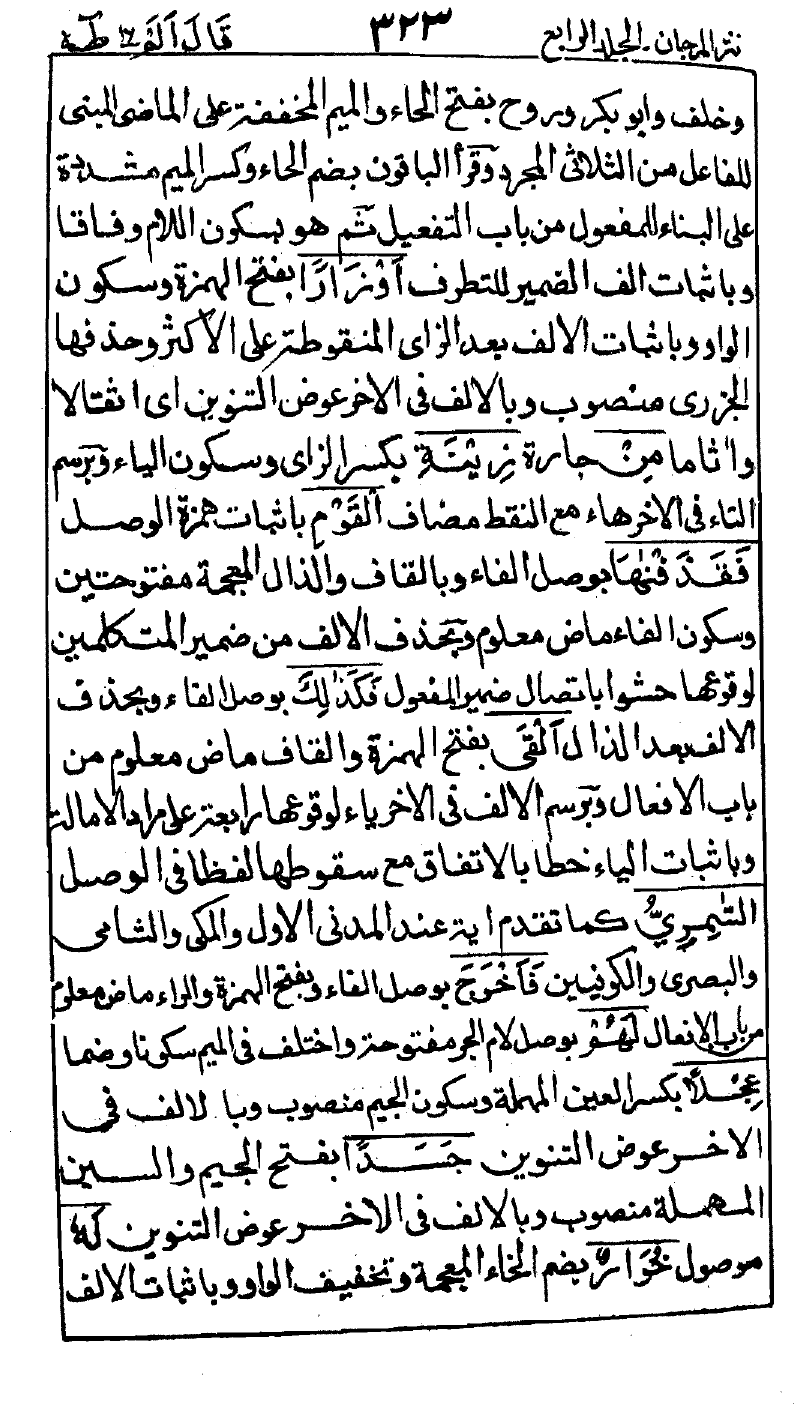 نثر المرجان - الجلد الرابع ٣٢٣ قَالَ اَلَمْ ١٦ طٰهٰ
وخلف وابو بكر وروح بفتح الحاء والميم المخففة على الماضى المبنى
للفاعل من الثلاثى المجرد وقرأ الباقون بضم الحاء وكسر الميم مشددة
على البناء للمفعول من باب التفعيل ثم هو بسكون اللام وفاقا
وباثبات الف الضمير للتطرف اَوْزَارًا بفتح الهمزة وسكون
الواو وباثبات الالف بعد الزاى المنقوطة على الاكثر وحذفها
الجزرى منصوب وبالالف فى الاخر عوض التنوين اى اثقالا
واٰثاما مِنْ جارة زِيْنَةِ بكسر الزاى وسكون الياء وبرسم
التاء فى الاخر هاء مع النقط مضاف الْقَوْمِ باثبات همزة الوصل
فَقَذَفْنٰهَا بوصل الفاء وبالقاف والذال المعجمة مفتوحتين
وسكون الفاء ماض معلوم وبحذف الالف من ضمير المتكلمين
لوقوعها حشوا باتصال ضمير المفعول فَكَذٰلِكَ بوصل الفاء وبحذف
الالف بعد الذال اَلْقَى بفتح الهمزة والقاف ماض معلوم من
باب الافعال وبرسم الالف فى الاخر ياء لوقوعها رابعة على مراد الامالة
وباثبات الياء خطا بالاتفاق مع سقوطها لفظا فى الوصل
السَّامِرِيُّ كما تقدم اية عند المدنى الاول والمكى والشامى
والبصرى والكوفيين فَاَخْرَجَ بوصل الفاء وبفتح الهمزة والراء ماض معلوم
من باب الافعال لَهُمْ بوصل لام الجر مفتوحة واختلف فى الميم سكونا وضما
عِجْلًا بكسر العين المهملة وسكون الجيم منصوب وبالالف فى
الاخر عوض التنوين جَسَدًا بفتح الجيم والسين
المهملة منصوب وبالالف فى الاخر عوض التنوين لَهٗ
موصول خُوَارٌ بضم الخاء المعجمة وتخفيف الواو وباثبات الالف